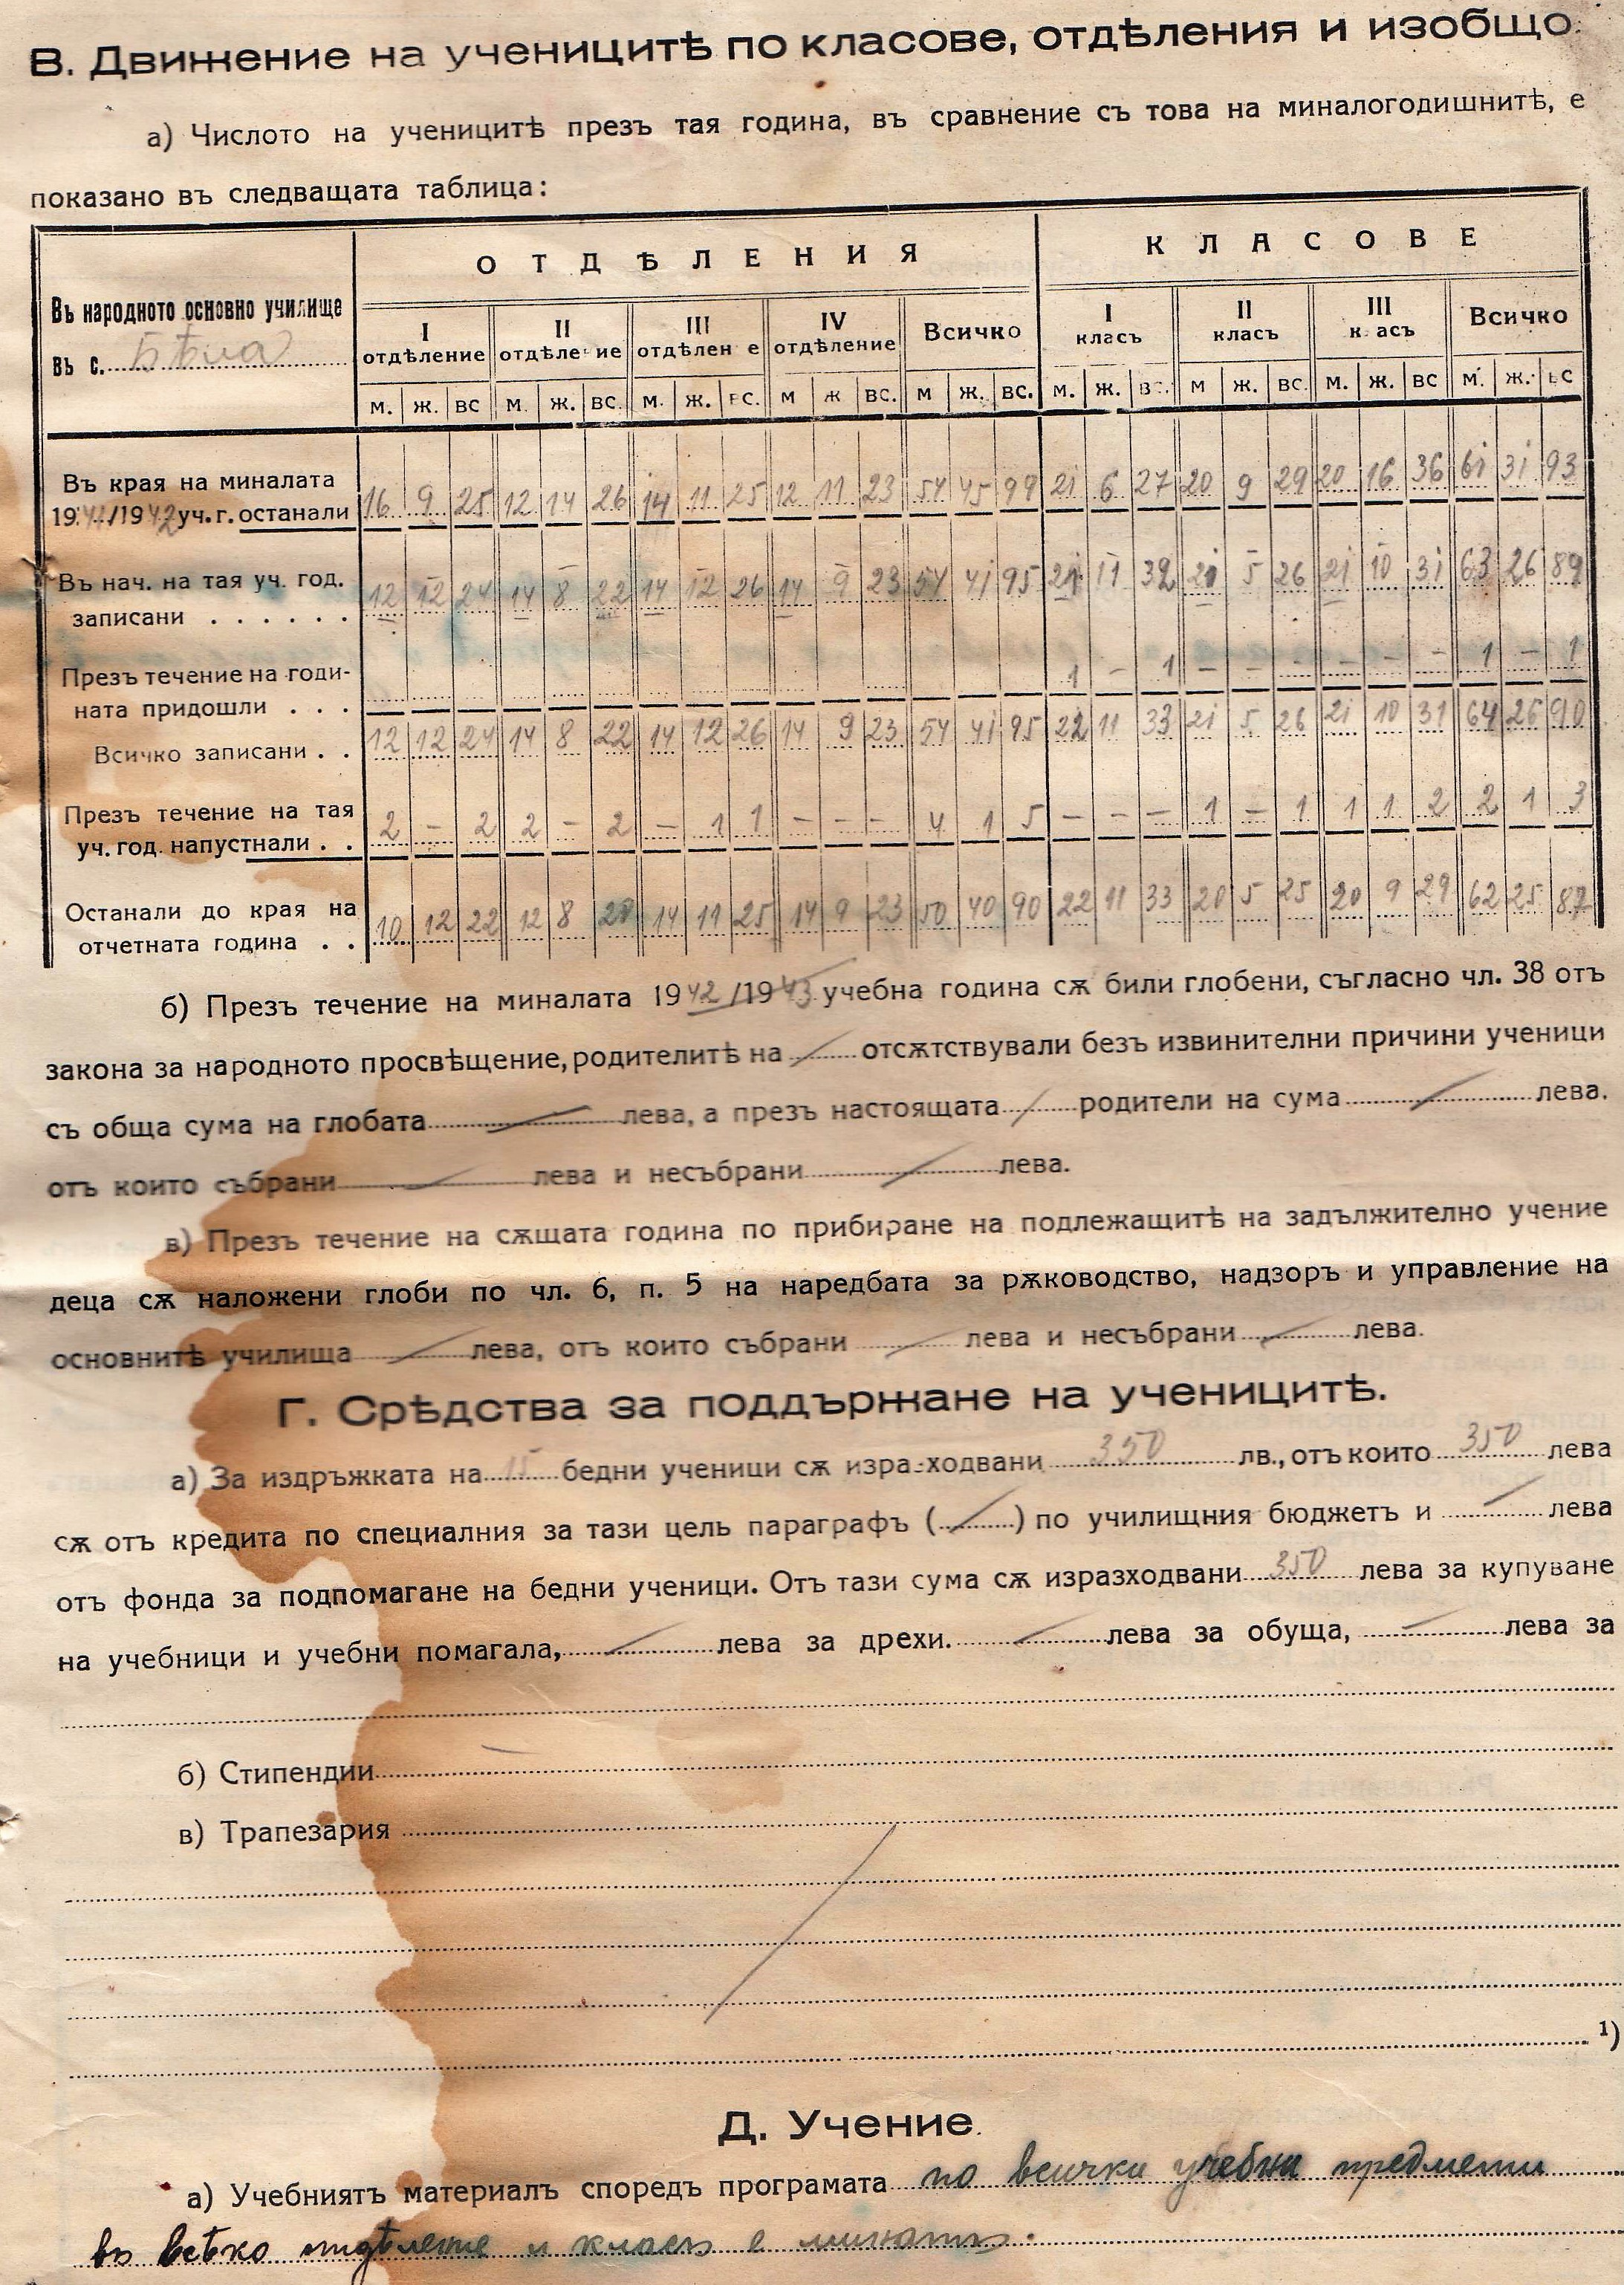 В. Движение на ученицитѣ по класове, отдѣления и изобщо.
а) Числото на ученицитѣ презъ тая година, въ сравнение съ това на миналогодишнитѣ, е
показано въ следващата таблица:
Въ народното основно училище
въ с. Бѣла
ОТДѢЛЕНИЯ КЛАСОВЕ
I отдѣление II отдѣле ие III отдѣлен е IV отдѣление Всичко I класъ II класъ III к асъ Всичко
м. ж. вс м. ж. вс. м. ж. вс. м ж вс. м ж. вс. м. ж. вс. м ж. вс. м. ж. вс м. ж. вс
Въ края на миналата
1941/1942 уч. г. останали 16 9 25 12 14 26 14 11 25 12 11 23 54 45 99 21 6 27 20 9 29 20 16 36 61 31 93
Въ нач. на тая уч. год.
записани . . . . . . 12 12 24 14 8 22 14 12 26 14 9 23 54 41 95 21 11 32 21 5 26 21 10 31 63 26 89
Презъ течение на годи-
ната придошли . . . 1 – 1 – – – – – – 1 – 1
Всичко записани . . 12 12 24 14 8 22 14 12 26 14 9 23 54 41 95 22 11 33 21 5 26 21 10 31 64 26 90
Презъ течение на тая
уч. год. напустнали . . 2 – 2 2 – 2 – 1 1 – – – 4 1 5 – – – 1 – 1 1 1 2 2 1 3
Останали до края на
отчетната година . . 10 12 22 12 8 20 14 11 25 14 9 23 50 40 90 22 11 33 20 5 25 20 9 29 62 25 87
б) Презъ течение на миналата 1942/1943 учебна година сѫ били глобени, съгласно чл. 38 отъ
закона за народното просвѣщение, родителитѣ на / отсѫтствували безъ извинителни причини ученици
съ обща сума на глобата / лева, а презъ настоящата / родители на сума / лева.
отъ които събрани / лева и несъбрани / лева.
в) Презъ течение на сѫщата година по прибиране на подлежащитѣ на задължително учение
деца сѫ наложени глоби по чл. 6, п. 5 на наредбата за рѫководство, надзоръ и управление на
основнитѣ училища / лева, отъ които събрани / лева и несъбрани / лева.
Г. Срѣдства за поддържане на ученицитѣ.
а) За издръжката на 15 бедни ученици сѫ изра-ходвани 350 лв., отъ които 350 лева
сѫ отъ кредита по специалния за тази цель параграфъ ( / ) по училищния бюджетъ и / лева
отъ фонда за подпомагане на бедни ученици. Отъ тази сума сѫ изразходвани 350 лева за купуване
на учебници и учебни помагала, / лева за дрехи. / лева за обуща, / лева за
б) Стипендии
в) Трапезария
1)
Д. Учение.
а) Учебниятъ материалъ споредъ програмата по всички учебни предмети
въ всѣко отдѣление и класъ е минатъ.